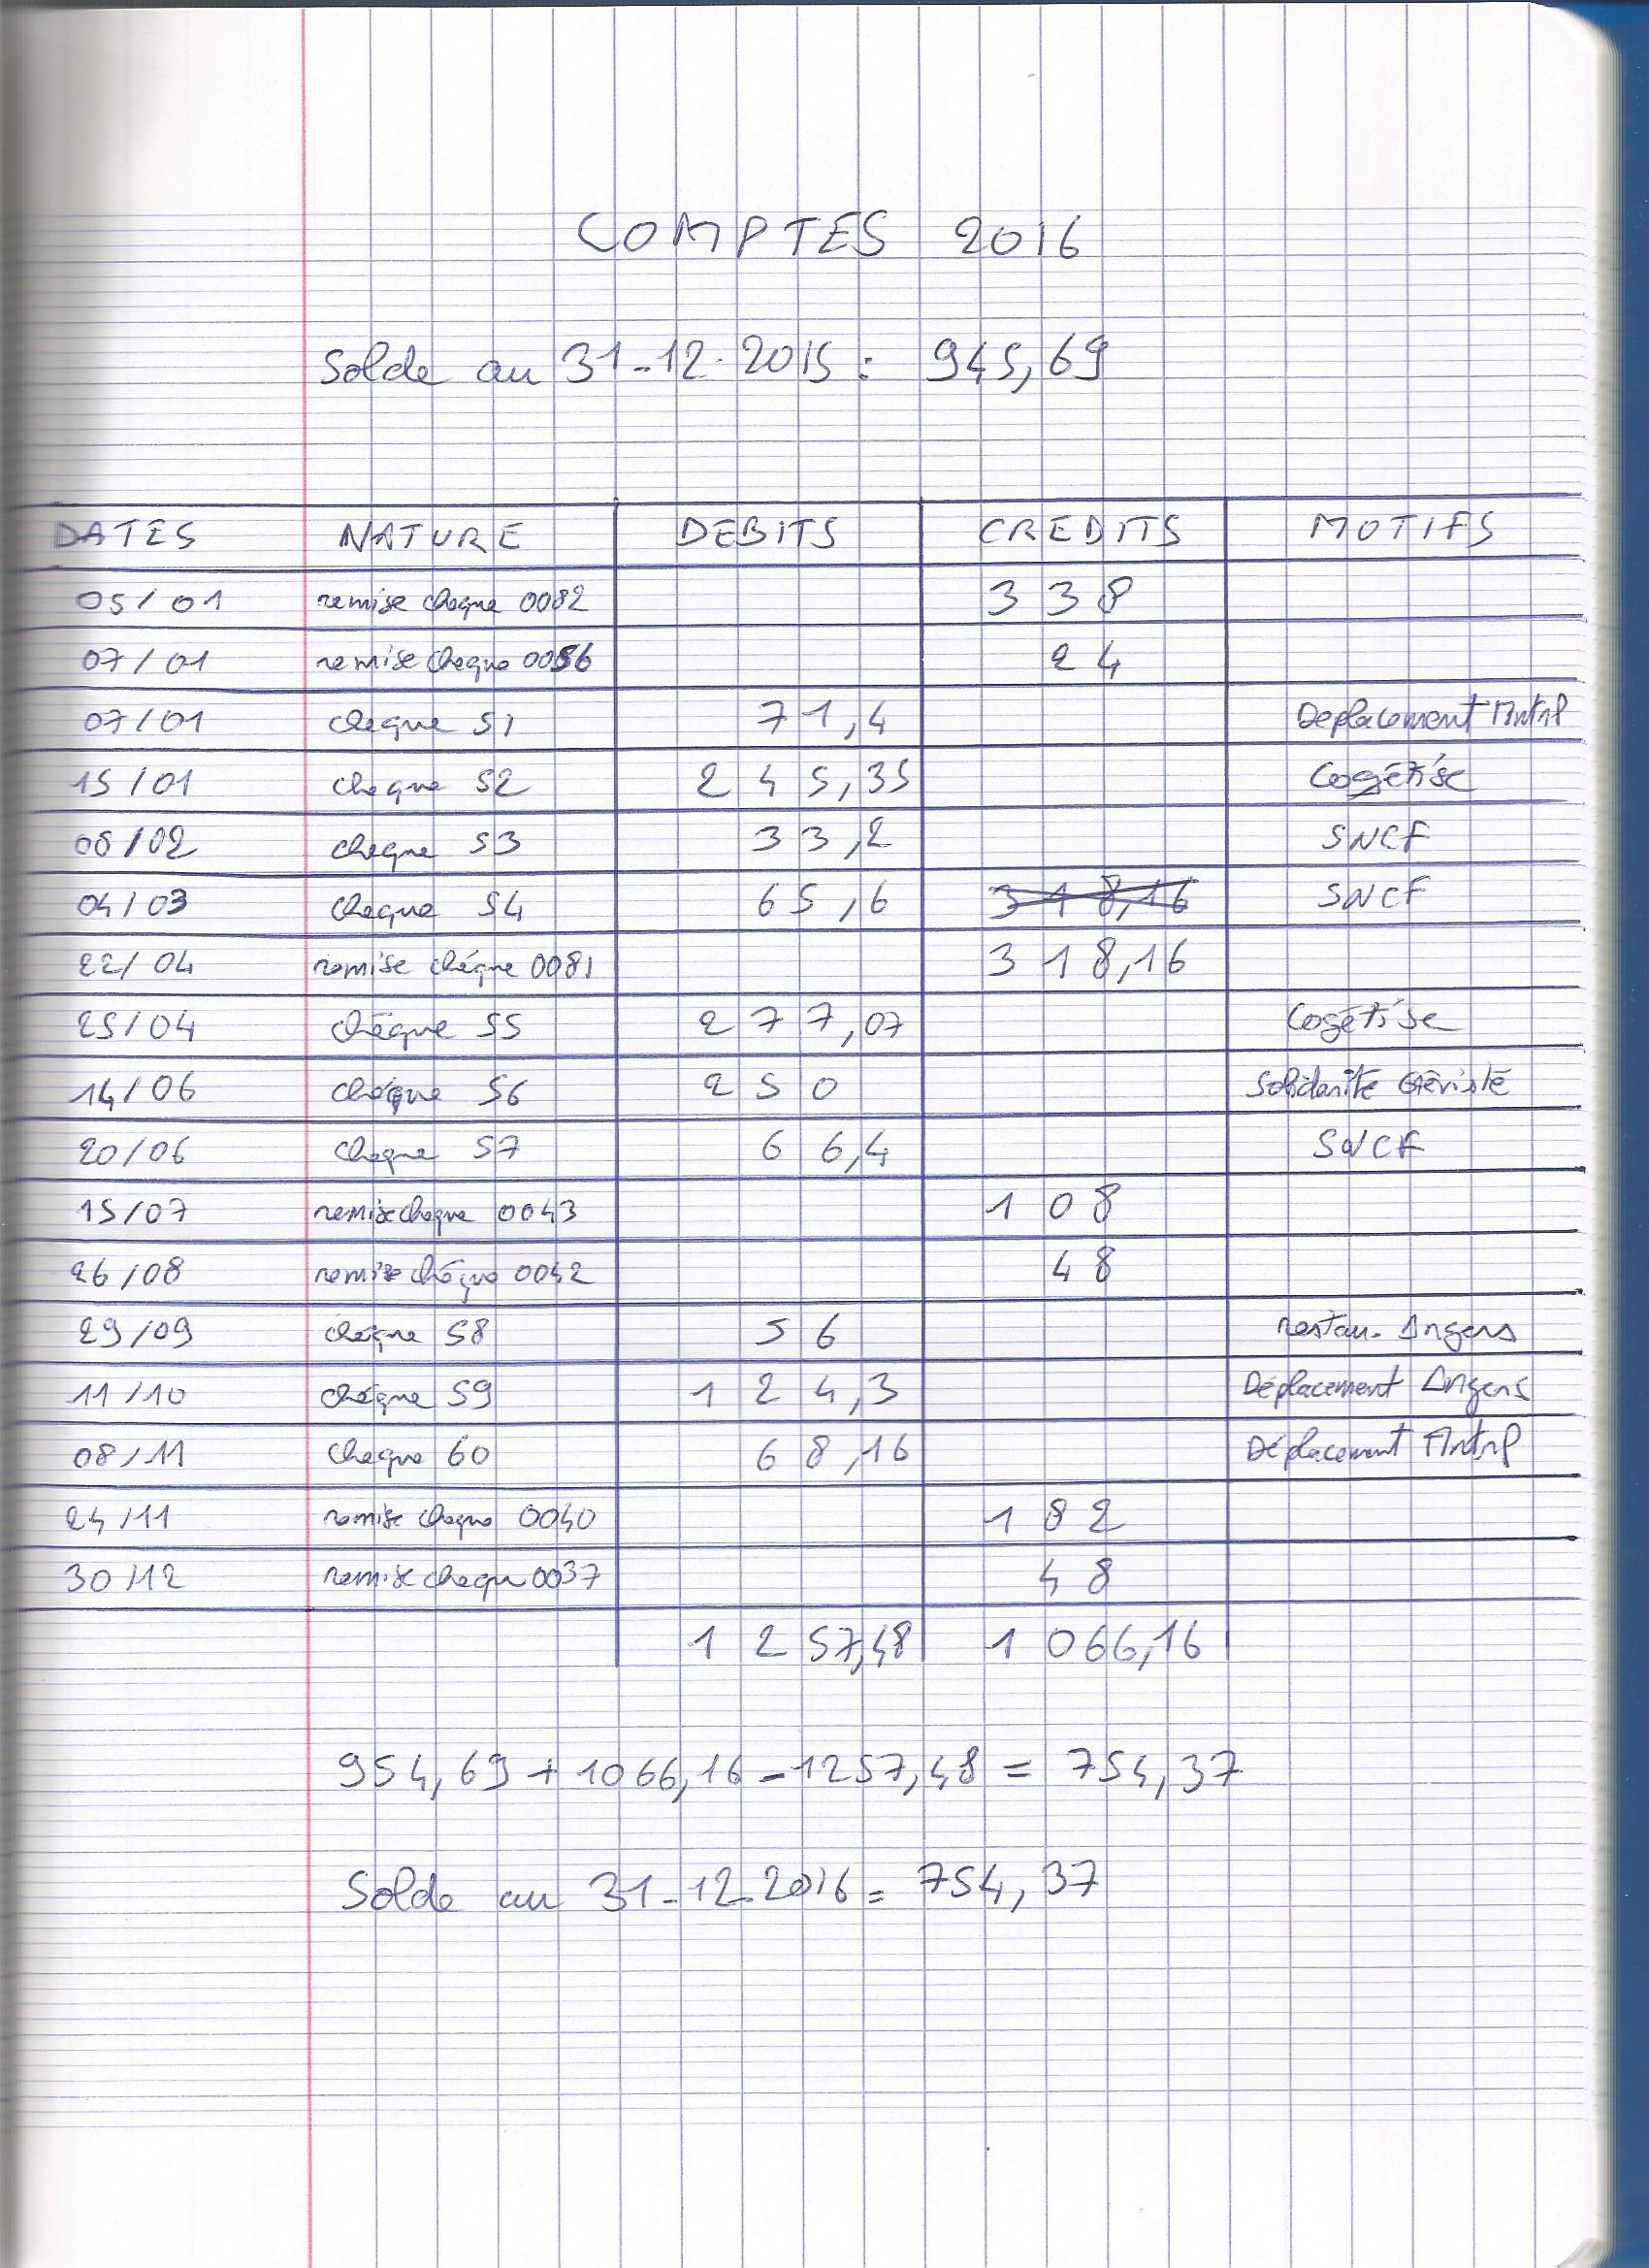 COMPTES 2016
Solde au 31-12-2015 : 945,69
DATES NATURE DEBITS CREDITS MOTIFS
05/01 remise cheque 0082 338
07/01 remise cheque 0056 24
07/01 cheque 51 71,4 Deplacement
15/01 cheque 52 245,35 Cogétise
08/02 cheque 53 33,2 SNCF
04/03 cheque 54 65,6 318,16 SNCF
22/04 remise chéque 0081 318,16
25/04 chéque 55 277,07 Cogétise
14/06 chéque 56 250 Solidarité Gréviste
20/06 cheque 57 66,4 SNCF
15/07 remise cheque 0043 108
26/08 remise chéque 0042 48
29/09 chéque 58 56 restau. Angers
11/10 chéque 59 124,3 Déplacement Angers
08/11 cheque 60 68,16 Déplacement
24/11 remise cheque 0040 182
30/12 remise cheque 0037 48
1257,48 1066,16
954,69 + 1066,16 - 1257,48 = 754,37
Solde au 31-12-2016 = 754,37